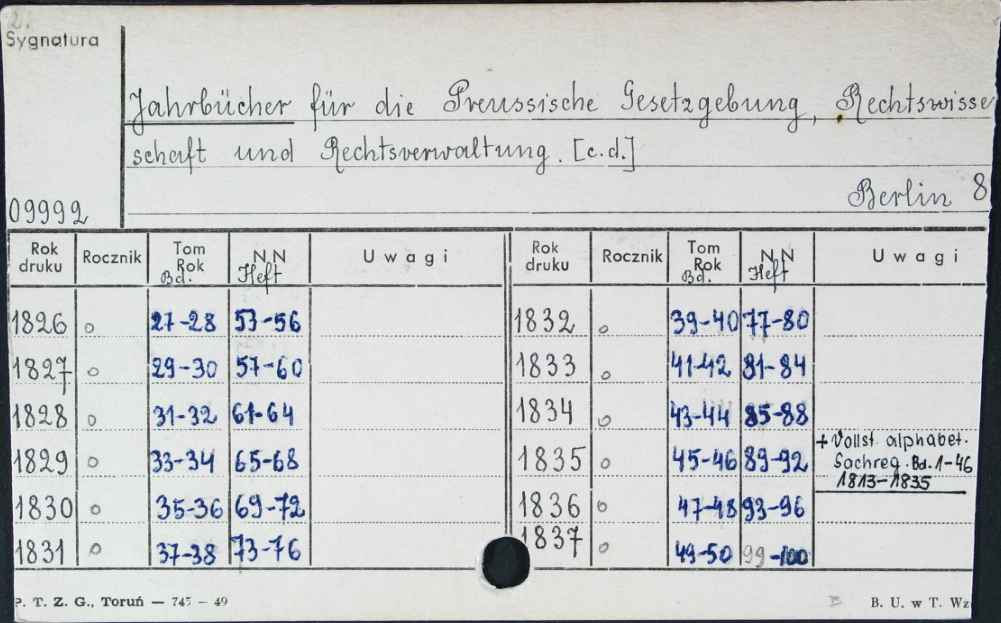 2.
Sygnatura
Jahrbücher für die Preussische Gesetzgebung, Rechtswisse
schaft und Rechtsverwaltung. [c.d.]
09992
Berlin 8
Rok druku Rocznik Tom Rok Bd. N N Heft Uwagi Rok druku Rocznik Tom Rok Bd. N N Heft Uwagi
1826 o 27-28 53-56 1832 o 39-40 77-80
1827 o 29-30 57-60 1833 o 41-42 81-84
1828 o 31-32 61-64 1834 o 43-44 85-88
1829 o 33-34 65-68 1835 o 45-46 89-92 + Vollst. alphabet.
Sachreg. Bd. 1-46
1813-1835
1830 o 35-36 69-72 1836 o 47-48 93-96
1831 o 37-38 73-76 1837 o 49-50 99-100
P. T. Z. G., Toruń — 745 - 49 B B. U. w T. Wz